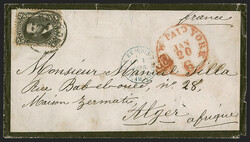 france
PAID
JAN
20
6
Monsieur Manuel Villa
Rue Bab-el-oued, nº 28,
Maison Zermati,
Alger
afrique